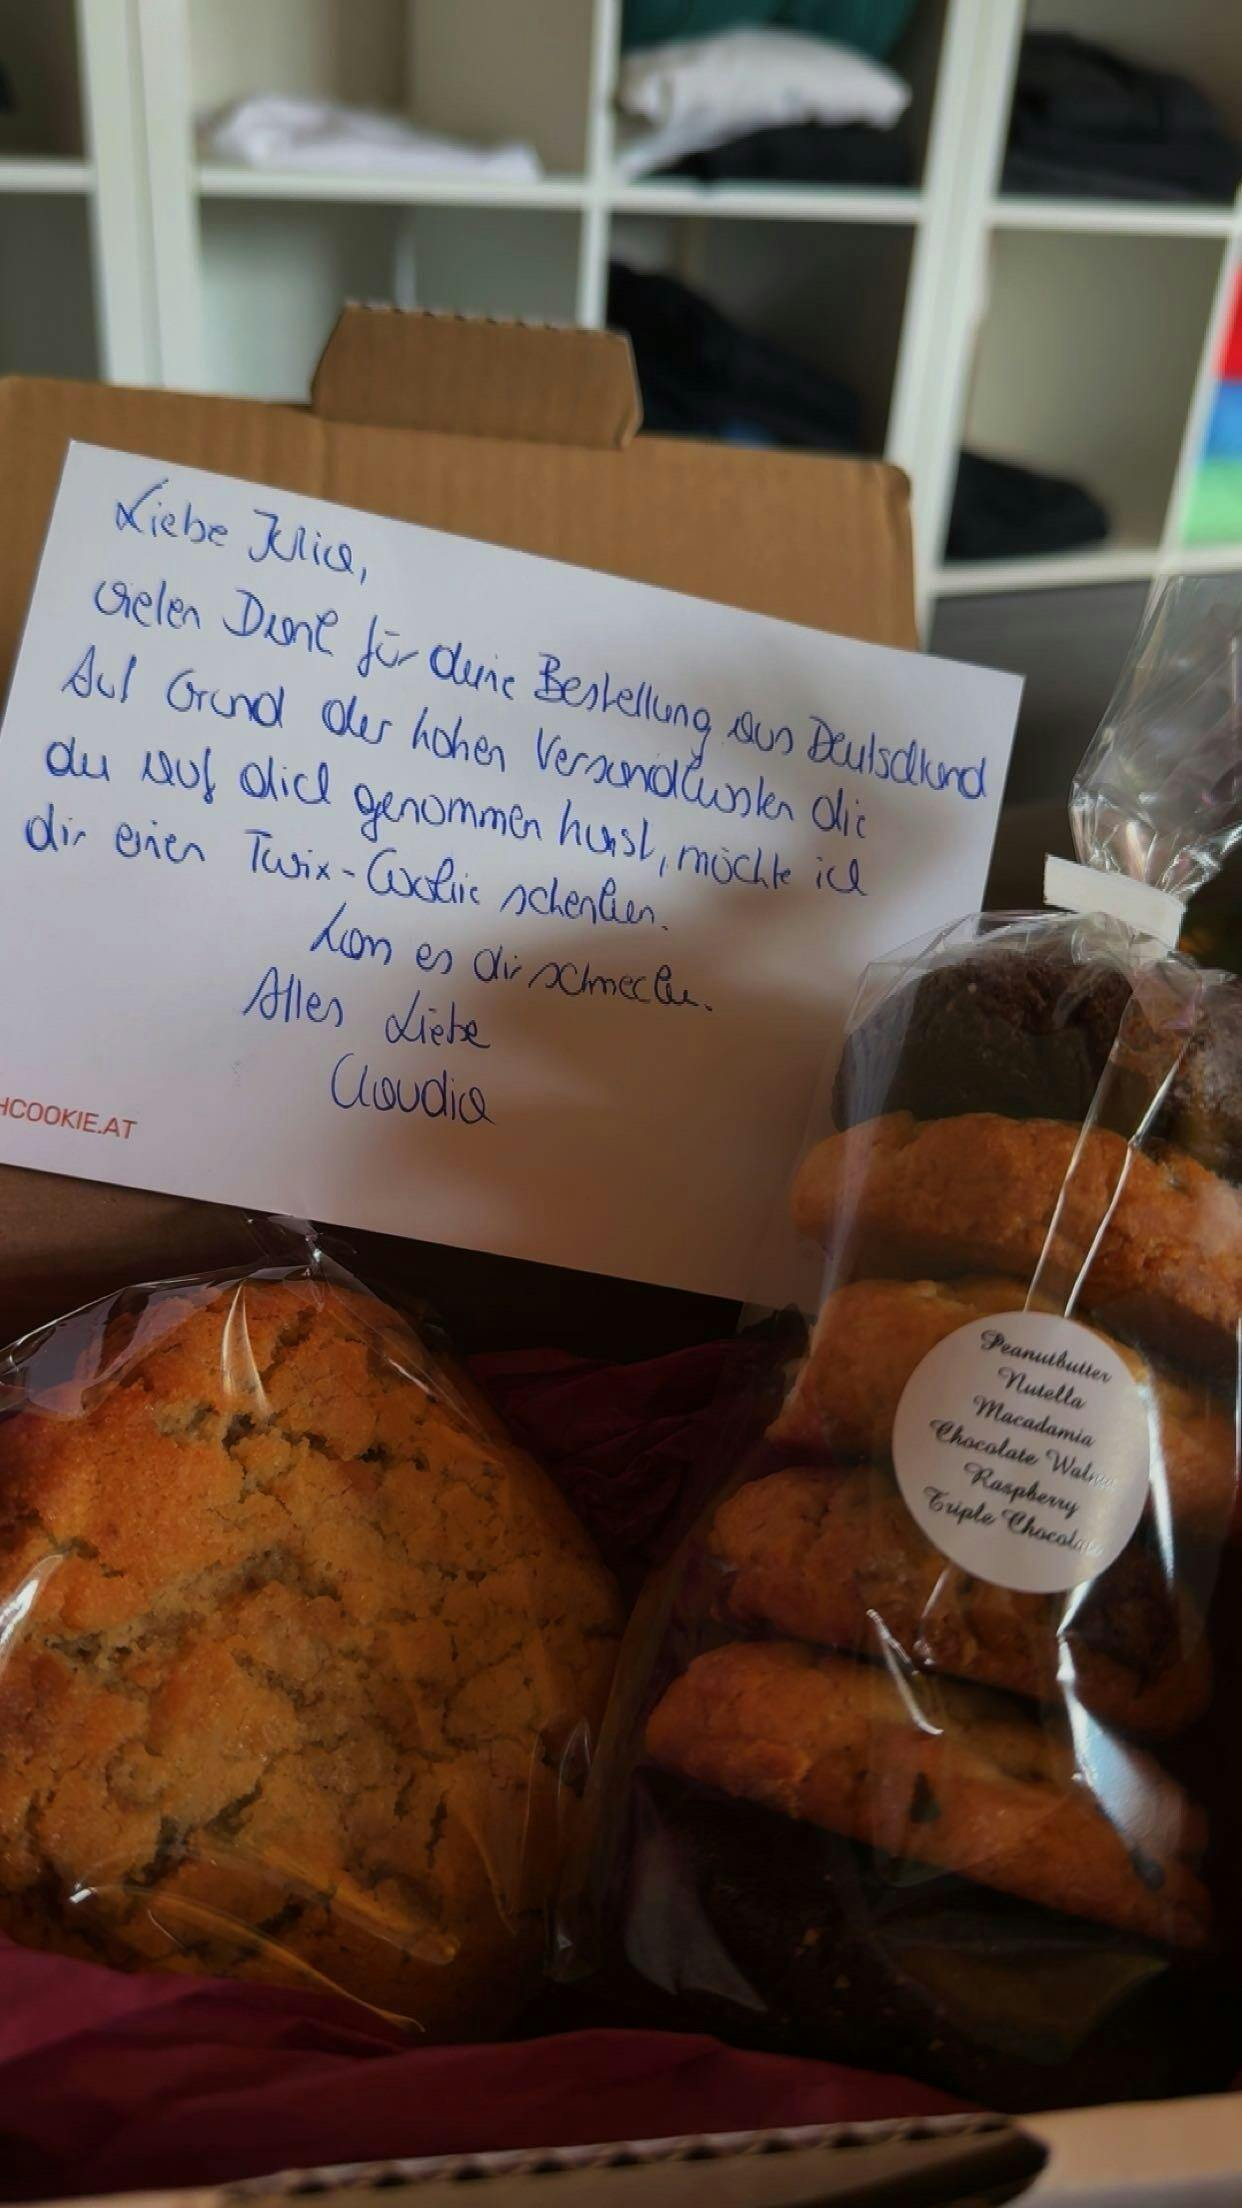 Liebe Julia,
vielen Dank für deine Bestellung aus Deutschland
Auf Grund der hohen Versandkosten die
du auf dich genommen hast, möchte ich
dir einen Twix-Cookie schenken.
Lass es dir schmecken.
Alles Liebe
Claudia
HCOOKIE.AT
Peanutbutter
Nutella
Macadamia
Chocolate Walnut
Raspberry
Triple Chocolate